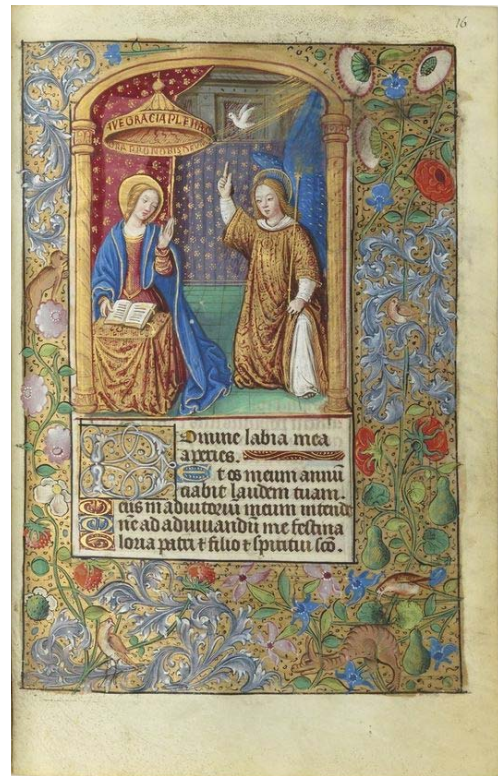 16
AVE GRACIA PLENA
Domine labia mea
aperies.
Et os meum annũ
ciabit laudem tuam.
Deus in adiutoriũ meum intende
Dñe ad adiuuandũ me festina
Gloria patri ⁊ filio ⁊ spiritui sc̃o.